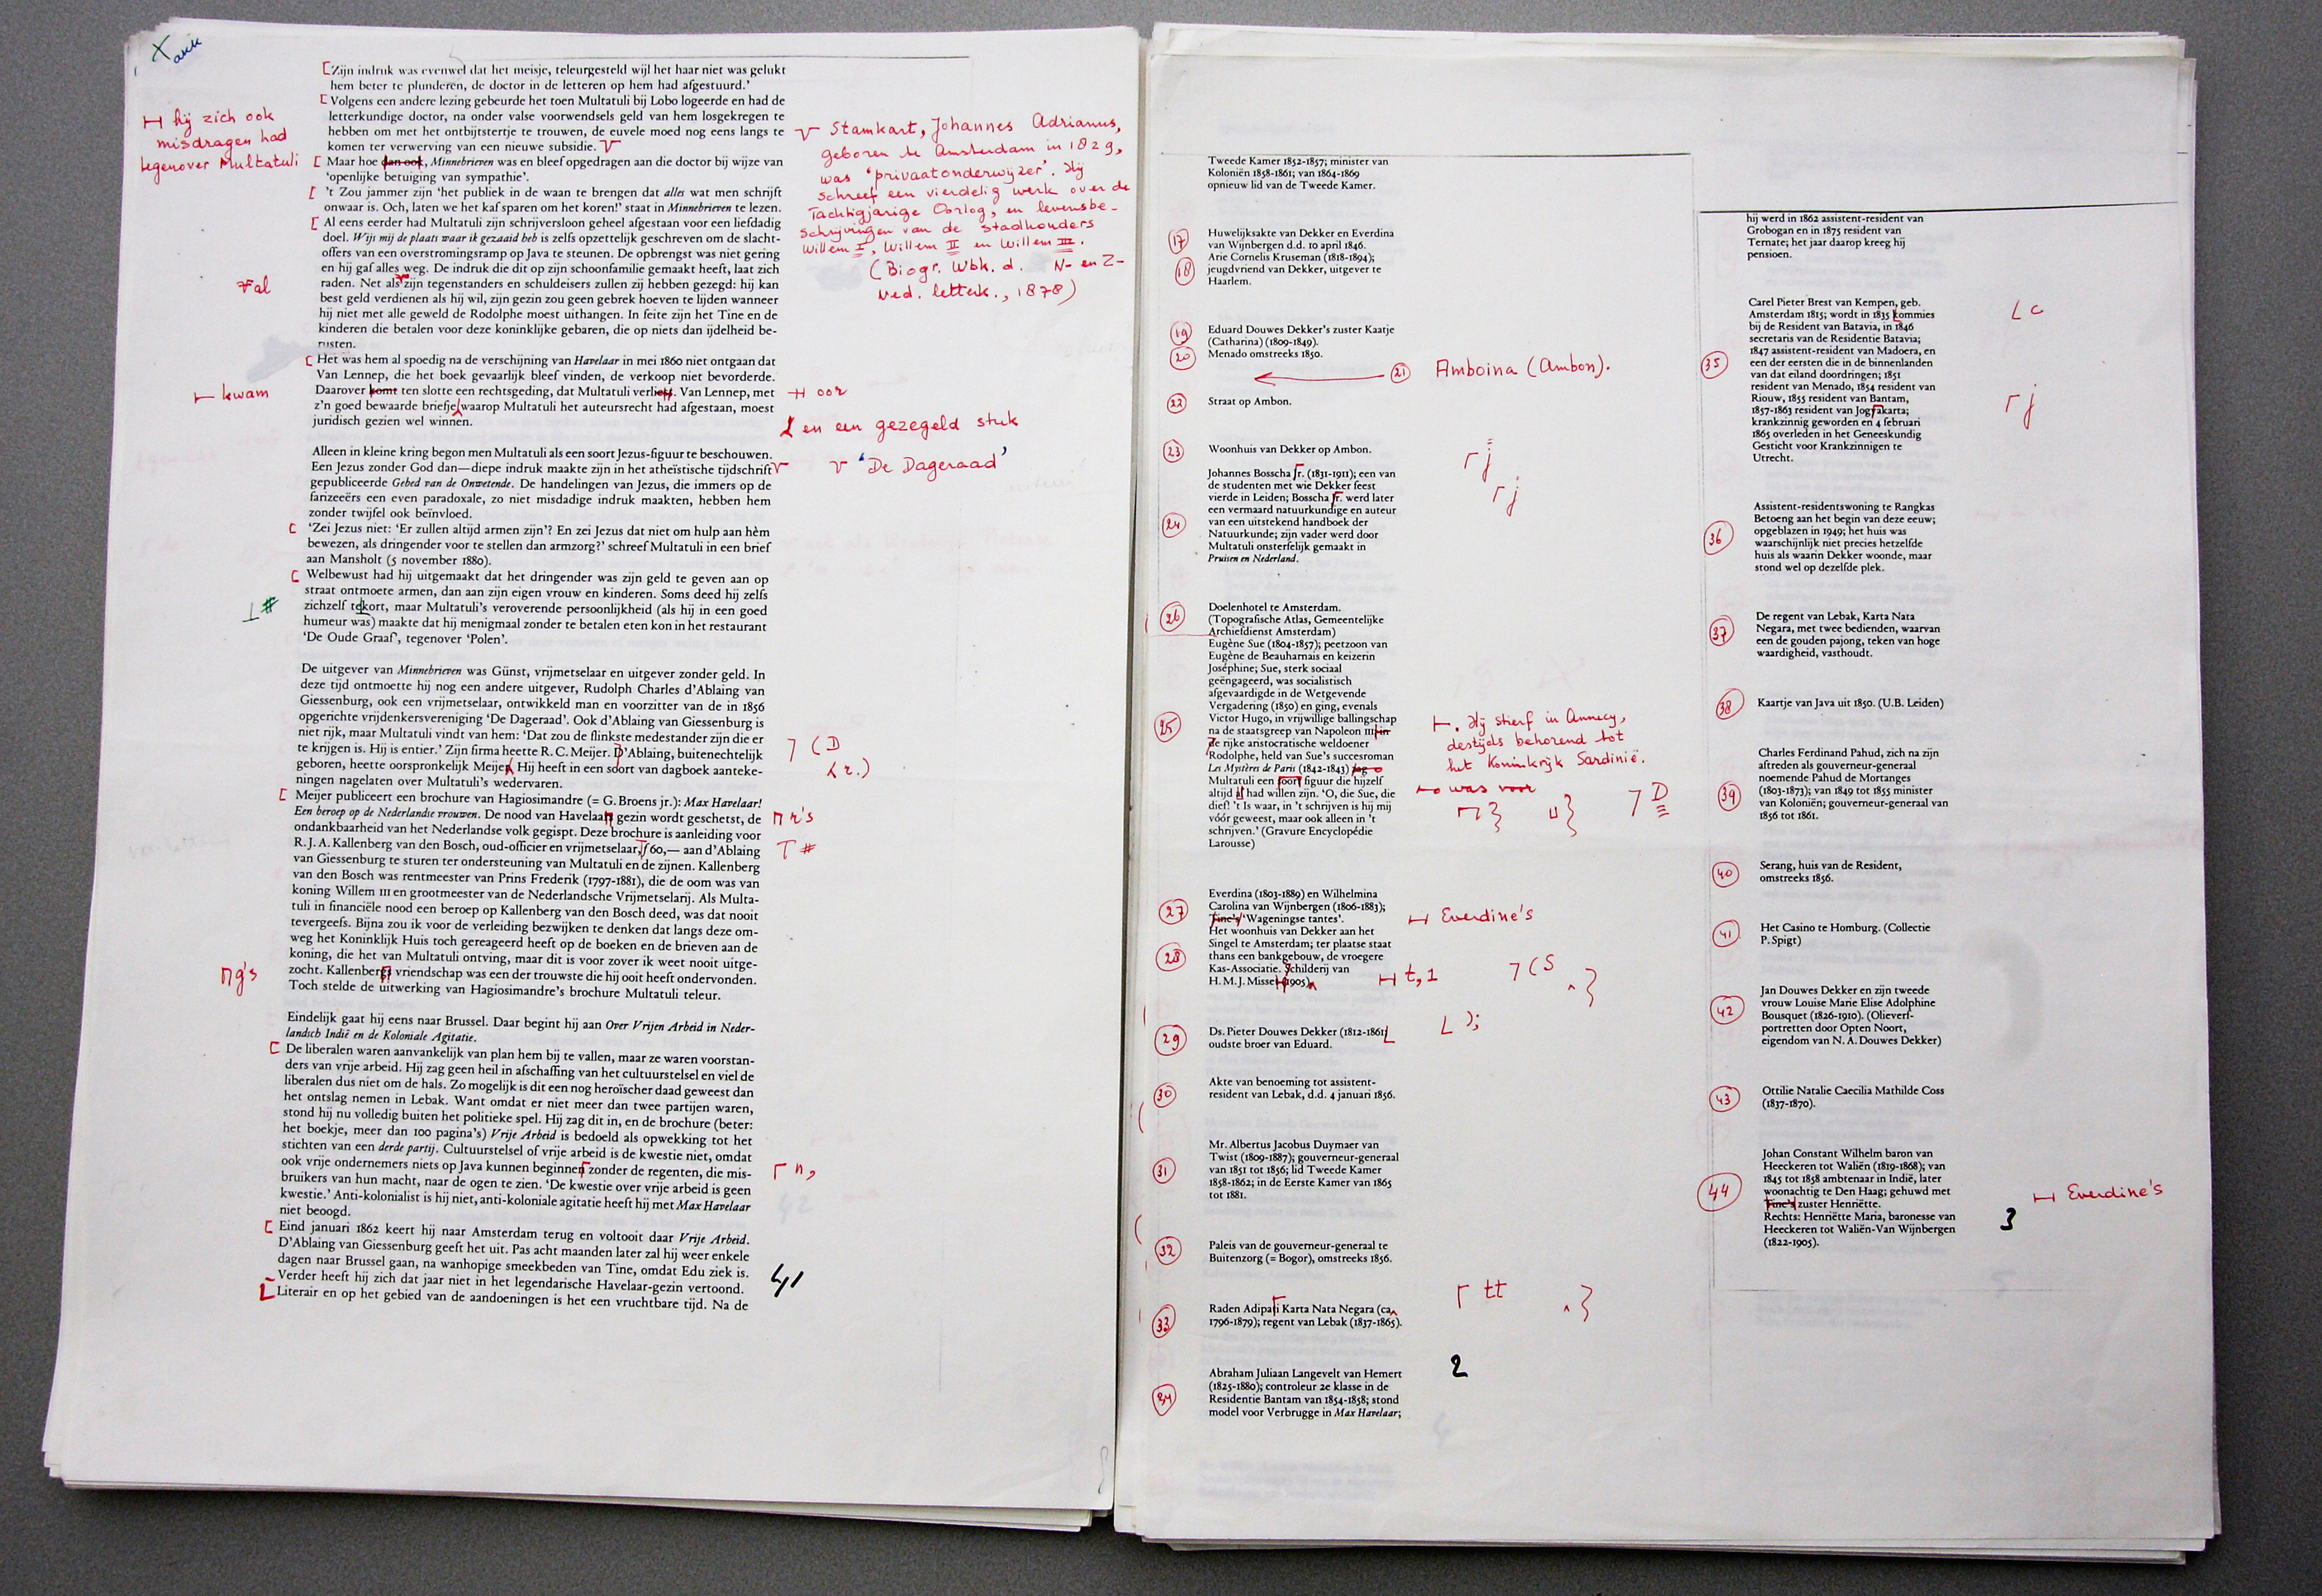 akk
Zijn indruk was evenwel dat het meisje, teleurgesteld wijl het haar niet was gelukt
hem beter te plunderen, de doctor in de letteren op hem had afgestuurd.’
Volgens een andere lezing gebeurde het toen Multatuli bij Lobo logeerde en had de
letterkundige doctor, na onder valse voorwendsels geld van hem losgekregen te
hebben om met het ontbijtstertje te trouwen, de euvele moed nog eens langs te
komen ter verwerving van een nieuwe subsidie.
Maar hoe dan ook, Minnebrieven was en bleef opgedragen aan die doctor bij wijze van
‘openlijke betuiging van sympathie’.
’t Zou jammer zijn ‘het publiek in de waan te brengen dat alles wat men schrijft
onwaar is. Och, laten we het kaf sparen om het koren!’ staat in Minnebrieven te lezen.
Al eens eerder had Multatuli zijn schrijversloon geheel afgestaan voor een liefdadig
doel. Wijs mij de plaats waar ik gezaaid heb is zelfs opzettelijk geschreven om de slacht-
offers van een overstromingsramp op Java te steunen. De opbrengst was niet gering
en hij gaf alles weg. De indruk die dit op zijn schoonfamilie gemaakt heeft, laat zich
raden. Net als zijn tegenstanders en schuldeisers zullen zij hebben gezegd: hij kan
best geld verdienen als hij wil, zijn gezin zou geen gebrek hoeven te lijden wanneer
hij niet met alle geweld de Rodolphe moest uithangen. In feite zijn het Tine en de
kinderen die betalen voor deze koninklijke gebaren, die op niets dan ijdelheid be-
rusten.
Het was hem al spoedig na de verschijning van Havelaar in mei 1860 niet ontgaan dat
Van Lennep, die het boek gevaarlijk bleef vinden, de verkoop niet bevorderde.
Daarover komt ten slotte een rechtsgeding, dat Multatuli verliest. Van Lennep, met
z’n goed bewaarde briefje waarop Multatuli het auteursrecht had afgestaan, moest
juridisch gezien wel winnen.
Alleen in kleine kring begon men Multatuli als een soort Jezus-figuur te beschouwen.
Een Jezus zonder God dan—diepe indruk maakte zijn in het atheïstische tijdschrift
gepubliceerde Gebed van de Onwetende. De handelingen van Jezus, die immers op de
farizeeërs een even paradoxale, zo niet misdadige indruk maakten, hebben hem
zonder twijfel ook beïnvloed.
‘Zei Jezus niet: ‘Er zullen altijd armen zijn’? En zei Jezus dat niet om hulp aan hèm
bewezen, als dringender voor te stellen dan armzorg?’ schreef Multatuli in een brief
aan Mansholt (5 november 1880).
Welbewust had hij uitgemaakt dat het dringender was zijn geld te geven aan op
straat ontmoete armen, dan aan zijn eigen vrouw en kinderen. Soms deed hij zelfs
zichzelf tekort, maar Multatuli’s veroverende persoonlijkheid (als hij in een goed
humeur was) maakte dat hij menigmaal zonder te betalen eten kon in het restaurant
‘De Oude Graaf’, tegenover ‘Polen’.
De uitgever van Minnebrieven was Günst, vrijmetselaar en uitgever zonder geld. In
deze tijd ontmoette hij nog een andere uitgever, Rudolph Charles d’Ablaing van
Giessenburg, ook een vrijmetselaar, ontwikkeld man en voorzitter van de in 1856
opgerichte vrijdenkersvereniging ‘De Dageraad’. Ook d’Ablaing van Giessenburg is
niet rijk, maar Multatuli vindt van hem: ‘Dat zou de flinkste medestander zijn die er
te krijgen is. Hij is entier.’ Zijn firma heette R. C. Meijer. D’Ablaing, buitenechtelijk
geboren, heette oorspronkelijk Meijer. Hij heeft in een soort van dagboek aanteke-
ningen nagelaten over Multatuli’s wedervaren.
Meijer publiceert een brochure van Hagiosimandre (= G. Broens jr.): Max Havelaar!
Een beroep op de Nederlandse vrouwen. De nood van Havelaars gezin wordt geschetst, de
ondankbaarheid van het Nederlandse volk gegispt. Deze brochure is aanleiding voor
R. J. A. Kallenberg van den Bosch, oud-officier en vrijmetselaar, ƒ60,— aan d’Ablaing
van Giessenburg te sturen ter ondersteuning van Multatuli en de zijnen. Kallenberg
van den Bosch was rentmeester van Prins Frederik (1797-1881), die de oom was van
koning Willem III en grootmeester van de Nederlandsche Vrijmetselarij. Als Multa-
tuli in financiële nood een beroep op Kallenberg van den Bosch deed, was dat nooit
tevergeefs. Bijna zou ik voor de verleiding bezwijken te denken dat langs deze om-
weg het Koninklijk Huis toch gereageerd heeft op de boeken en de brieven aan de
koning, die het van Multatuli ontving, maar dit is voor zover ik weet nooit uitge-
zocht. Kallenbergs vriendschap was een der trouwste die hij ooit heeft ondervonden.
Toch stelde de uitwerking van Hagiosimandre’s brochure Multatuli teleur.
Eindelijk gaat hij eens naar Brussel. Daar begint hij aan Over Vrijen Arbeid in Neder-
landsch Indië en de Koloniale Agitatie.
De liberalen waren aanvankelijk van plan hem bij te vallen, maar ze waren voorstan-
ders van vrije arbeid. Hij zag geen heil in afschaffing van het cultuurstelsel en viel de
liberalen dus niet om de hals. Zo mogelijk is dit een nog heroïscher daad geweest dan
het ontslag nemen in Lebak. Want omdat er niet meer dan twee partijen waren,
stond hij nu volledig buiten het politieke spel. Hij zag dit in, en de brochure (beter:
het boekje, meer dan 100 pagina’s) Vrije Arbeid is bedoeld als opwekking tot het
stichten van een derde partij. Cultuurstelsel of vrije arbeid is de kwestie niet, omdat
ook vrije ondernemers niets op Java kunnen beginnen zonder de regenten, die mis-
bruikers van hun macht, naar de ogen te zien. ‘De kwestie over vrije arbeid is geen
kwestie.’ Anti-kolonialist is hij niet, anti-koloniale agitatie heeft hij met Max Havelaar
niet beoogd.
Eind januari 1862 keert hij naar Amsterdam terug en voltooit daar Vrije Arbeid.
D’Ablaing van Giessenburg geeft het uit. Pas acht maanden later zal hij weer enkele
dagen naar Brussel gaan, na wanhopige smeekbeden van Tine, omdat Edu ziek is.
Verder heeft hij zich dat jaar niet in het legendarische Havelaar-gezin vertoond.
Literair en op het gebied van de aandoeningen is het een vruchtbare tijd. Na de
41
hij zich ook
misdragen had
tegenover Multatuli
al
kwam
#
g's
Stamkart, Johannes Adrianus,
geboren te Amsterdam in 1829,
was 'privaatonderwijzer'. Hij
schreef een vierdelig werk over de
Tachtigjarige Oorlog, en levensbe-
schrijvingen van de stadhouders
Willem I, Willem II en Willem III.
(Biogr. Wbk. d. N- en Z-
Ned. letterk., 1878)
oor
en een gezegeld stuk
'De Dageraad'
(D
r.)
r's
#
n,
Tweede Kamer 1852-1857; minister van
Koloniën 1858-1861; van 1864-1869
opnieuw lid van de Tweede Kamer.
17 Huwelijksakte van Dekker en Everdina
van Wijnbergen d.d. 10 april 1846.
Arie Cornelis Kruseman (1818-1894);
18 jeugdvriend van Dekker, uitgever te
Haarlem.
19 Eduard Douwes Dekker’s zuster Kaatje
(Catharina) (1809-1849).
20 Menado omstreeks 1850.
21 Amboina (Ambon).
22 Straat op Ambon.
23 Woonhuis van Dekker op Ambon.
j
Johannes Bosscha Jr. (1831-1911); een van
de studenten met wie Dekker feest
j
vierde in Leiden; Bosscha Jr. werd later
een vermaard natuurkundige en auteur
24 van een uitstekend handboek der
Natuurkunde; zijn vader werd door
Multatuli onsterfelijk gemaakt in
Pruisen en Nederland.
26 Doelenhotel te Amsterdam.
(Topografische Atlas, Gemeentelijke
Archiefdienst Amsterdam)
Eugène Sue (1804-1857); peetzoon van
Eugène de Beauharnais en keizerin
Joséphine; Sue, sterk sociaal
geëngageerd, was socialistisch
afgevaardigde in de Wetgevende
Vergadering (1850) en ging, evenals
25 Victor Hugo, in vrijwillige ballingschap
na de staatsgreep van Napoleon III in
de rijke aristocratische weldoener
Rodolphe, held van Sue’s succesroman
Les Mystères de Paris (1842-1843) zag
Multatuli een soort figuur die hijzelf
altijd had willen zijn. ‘O, die Sue, die
dief! ’t Is waar, in ’t schrijven is hij mij
vóór geweest, maar ook alleen in ’t
schrijven.’ (Gravure Encyclopédie
Larousse)
. Hij stierf in Annecy,
destijds behorend tot
het Koninkrijk Sardinië.
was voor
D
27 Everdina (1803-1889) en Wilhelmina
Carolina van Wijnbergen (1806-1883);
Tine’s ‘Wageningse tantes’.
Everdine's
28 Het woonhuis van Dekker aan het
Singel te Amsterdam; ter plaatse staat
thans een bankgebouw, de vroegere
Kas-Associatie. Schilderij van
H. M. J. Misset (1905)
t,1
(S
29 Ds. Pieter Douwes Dekker (1812-1861
oudste broer van Eduard.
);
30 Akte van benoeming tot assistent-
resident van Lebak, d.d. 4 januari 1856.
31 Mr. Albertus Jacobus Duymaer van
Twist (1809-1887); gouverneur-generaal
van 1851 tot 1856; lid Tweede Kamer
1858-1862; in de Eerste Kamer van 1865
tot 1881.
32 Paleis van de gouverneur-generaal te
Buitenzorg (= Bogor), omstreeks 1856.
33 Raden Adipati Karta Nata Negara (ca
1796-1879); regent van Lebak (1837-1865).
tt
2
34 Abraham Juliaan Langevelt van Hemert
(1825-1880); controleur 2e klasse in de
Residentie Bantam van 1854-1858; stond
model voor Verbrugge in Max Havelaar;
hij werd in 1862 assistent-resident van
Grobogan en in 1875 resident van
Ternate; het jaar daarop kreeg hij
pensioen.
35 Carel Pieter Brest van Kempen, geb.
Amsterdam 1815; wordt in 1835 kommies
bij de Resident van Batavia, in 1846
secretaris van de Residentie Batavia;
1847 assistent-resident van Madoera, en
een der eersten die in de binnenlanden
van dat eiland doordringen; 1851
resident van Menado, 1854 resident van
Riouw, 1855 resident van Bantam,
1857-1863 resident van Jogjakarta;
krankzinnig geworden en 4 februari
1865 overleden in het Geneeskundig
Gesticht voor Krankzinnigen te
Utrecht.
c
j
36 Assistent-residentswoning te Rangkas
Betoeng aan het begin van deze eeuw;
opgeblazen in 1949; het huis was
waarschijnlijk niet precies hetzelfde
huis als waarin Dekker woonde, maar
stond wel op dezelfde plek.
37 De regent van Lebak, Karta Nata
Negara, met twee bedienden, waarvan
een de gouden pajong, teken van hoge
waardigheid, vasthoudt.
38 Kaartje van Java uit 1850. (U.B. Leiden)
39 Charles Ferdinand Pahud, zich na zijn
aftreden als gouverneur-generaal
noemende Pahud de Mortanges
(1803-1873); van 1849 tot 1855 minister
van Koloniën; gouverneur-generaal van
1856 tot 1861.
40 Serang, huis van de Resident,
omstreeks 1856.
41 Het Casino te Homburg. (Collectie
P. Spigt)
42 Jan Douwes Dekker en zijn tweede
vrouw Louise Marie Elise Adolphine
Bousquet (1826-1910). (Olieverf-
portretten door Opten Noort,
eigendom van N. A. Douwes Dekker)
43 Ottilie Natalie Caecilia Mathilde Coss
(1837-1870).
44 Johan Constant Wilhelm baron van
Heeckeren tot Waliën (1819-1868); van
1845 tot 1858 ambtenaar in Indië, later
woonachtig te Den Haag; gehuwd met
Tine’s zuster Henriëtte.
Rechts: Henriëtte Maria, baronesse van
Heeckeren tot Waliën-Van Wijnbergen
(1822-1905).
Everdine's
3